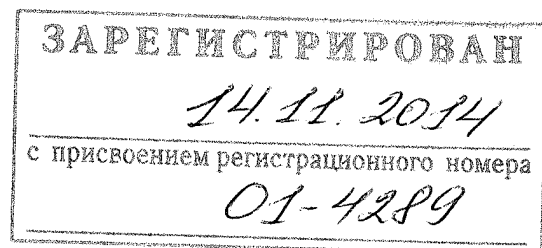 ЗАРЕГИСТРИРОВАН
14.11.2014
с присвоением регистрационного номера
01-4289